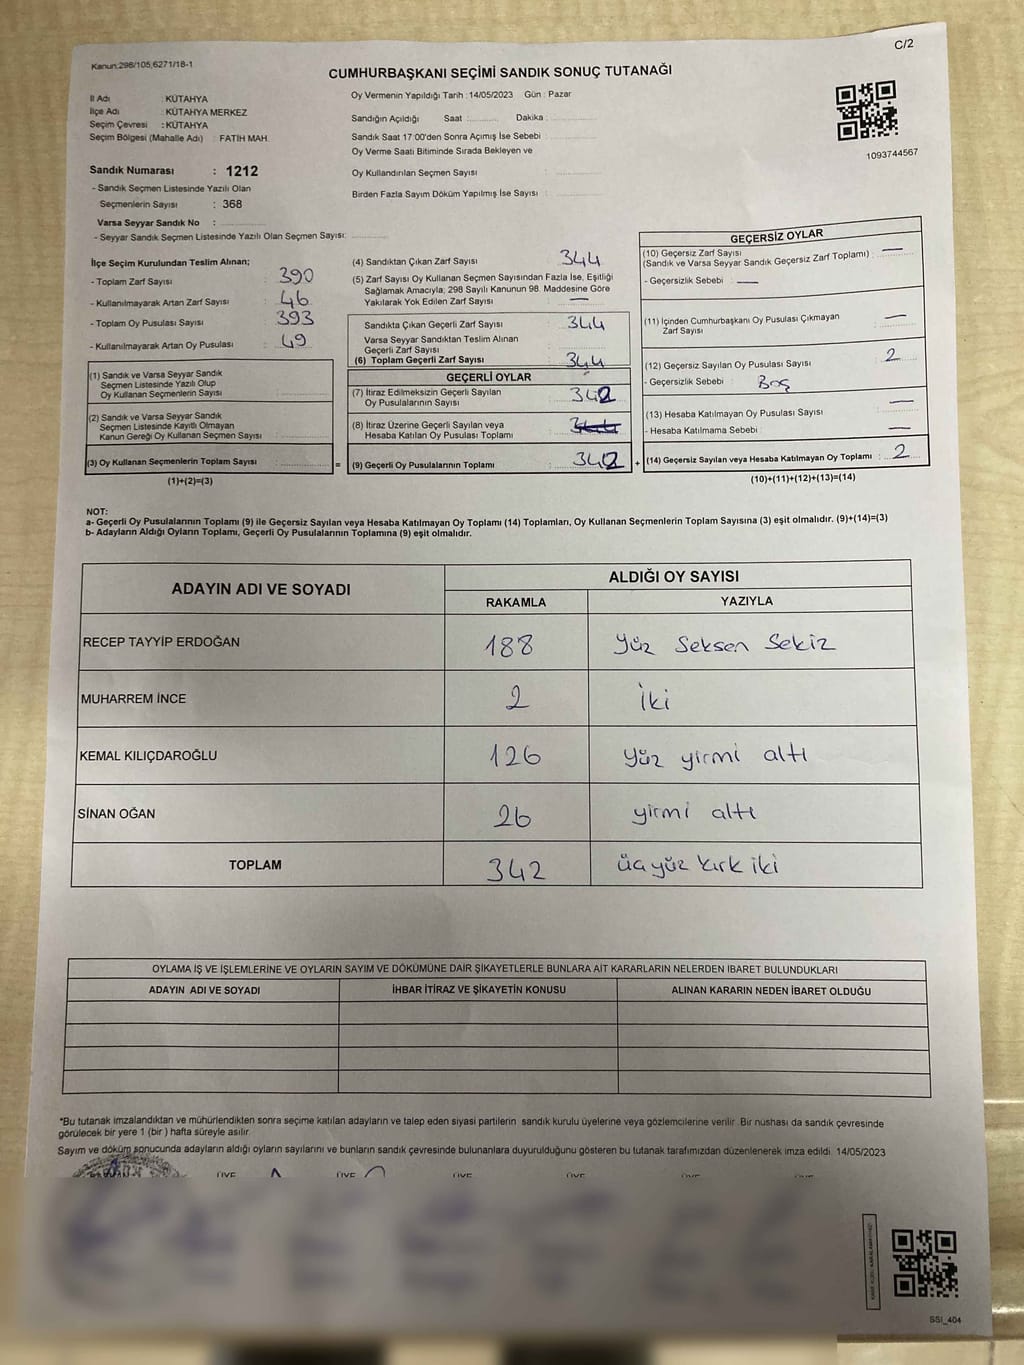 C/2
Kanun:298/105,6271/18-1
CUMHURBAŞKANI SEÇİMİ SANDIK SONUÇ TUTANAĞI
İl Adı : KÜTAHYA
İlçe Adı : KÜTAHYA MERKEZ
Seçim Çevresi : KÜTAHYA
Seçim Bölgesi (Mahalle Adı) : FATİH MAH.
Oy Vermenin Yapıldığı Tarih : 14/05/2023 Gün : Pazar
Sandığın Açıldığı Saat : Dakika :
Sandık Saat 17:00'den Sonra Açılmış İse Sebebi :
Oy Verme Saati Bitiminde Sırada Bekleyen ve
Oy Kullandırılan Seçmen Sayısı :
Birden Fazla Sayım Döküm Yapılmış İse Sayısı :
1093744567
Sandık Numarası : 1212
- Sandık Seçmen Listesinde Yazılı Olan
Seçmenlerin Sayısı : 368
Varsa Seyyar Sandık No :
- Seyyar Sandık Seçmen Listesinde Yazılı Olan Seçmen Sayısı:
İlçe Seçim Kurulundan Teslim Alınan;
- Toplam Zarf Sayısı : 390
- Kullanılmayarak Artan Zarf Sayısı : 46
- Toplam Oy Pusulası Sayısı : 393
- Kullanılmayarak Artan Oy Pusulası : 49
(1) Sandık ve Varsa Seyyar Sandık
Seçmen Listesinde Yazılı Olup
Oy Kullanan Seçmenlerin Sayısı :
(2) Sandık ve Varsa Seyyar Sandık
Seçmen Listesinde Kayıtlı Olmayan
Kanun Gereği Oy Kullanan Seçmen Sayısı :
(3) Oy Kullanan Seçmenlerin Toplam Sayısı :
(1)+(2)=(3)
(4) Sandıktan Çıkan Zarf Sayısı : 344
(5) Zarf Sayısı Oy Kullanan Seçmen Sayısından Fazla İse, Eşitliği
Sağlamak Amacıyla; 298 Sayılı Kanunun 98. Maddesine Göre
Yakılarak Yok Edilen Zarf Sayısı : —
Sandıkta Çıkan Geçerli Zarf Sayısı : 344
Varsa Seyyar Sandıktan Teslim Alınan
Geçerli Zarf Sayısı :
(6) Toplam Geçerli Zarf Sayısı : 344
GEÇERLİ OYLAR
(7) İtiraz Edilmeksizin Geçerli Sayılan
Oy Pusulalarının Sayısı : 342
(8) İtiraz Üzerine Geçerli Sayılan veya
Hesaba Katılan Oy Pusulası Toplamı :
= (9) Geçerli Oy Pusulalarının Toplamı : 342 +
GEÇERSİZ OYLAR
(10) Geçersiz Zarf Sayısı : —
(Sandık ve Varsa Seyyar Sandık Geçersiz Zarf Toplamı)
- Geçersizlik Sebebi : —
(11) İçinden Cumhurbaşkanı Oy Pusulası Çıkmayan
Zarf Sayısı : —
(12) Geçersiz Sayılan Oy Pusulası Sayısı : 2
- Geçersizlik Sebebi : Boş
(13) Hesaba Katılmayan Oy Pusulası Sayısı : —
- Hesaba Katılmama Sebebi : —
(14) Geçersiz Sayılan veya Hesaba Katılmayan Oy Toplamı : 2
(10)+(11)+(12)+(13)=(14)
NOT:
a- Geçerli Oy Pusulalarının Toplamı (9) ile Geçersiz Sayılan veya Hesaba Katılmayan Oy Toplamı (14) Toplamları, Oy Kullanan Seçmenlerin Toplam Sayısına (3) eşit olmalıdır. (9)+(14)=(3)
b- Adayların Aldığı Oyların Toplamı, Geçerli Oy Pusulalarının Toplamına (9) eşit olmalıdır.
ADAYIN ADI VE SOYADI
ALDIĞI OY SAYISI
RAKAMLA YAZIYLA
RECEP TAYYİP ERDOĞAN 188 Yüz Seksen Sekiz
MUHARREM İNCE 2 İki
KEMAL KILIÇDAROĞLU 126 Yüz yirmi altı
SİNAN OĞAN 26 yirmi altı
TOPLAM 342 üçyüz kırk iki
OYLAMA İŞ VE İŞLEMLERİNE VE OYLARIN SAYIM VE DÖKÜMÜNE DAİR ŞİKAYETLERLE BUNLARA AİT KARARLARIN NELERDEN İBARET BULUNDUKLARI
ADAYIN ADI VE SOYADI İHBAR İTİRAZ VE ŞİKAYETİN KONUSU ALINAN KARARIN NEDEN İBARET OLDUĞU
*Bu tutanak imzalandıktan ve mühürlendikten sonra seçime katılan adayların ve talep eden siyasi partilerin sandık kurulu üyelerine veya gözlemcilerine verilir. Bir nüshası da sandık çevresinde
görülecek bir yere 1 (bir) hafta süreyle asılır.
Sayım ve döküm sonucunda adayların aldığı oyların sayılarını ve bunların sandık çevresinde bulunanlara duyurulduğunu gösteren bu tutanak tarafımızdan düzenlenerek imza edildi. 14/05/2023
ÜYE ÜYE ÜYE ÜYE ÜYE ÜYE
SSI_404